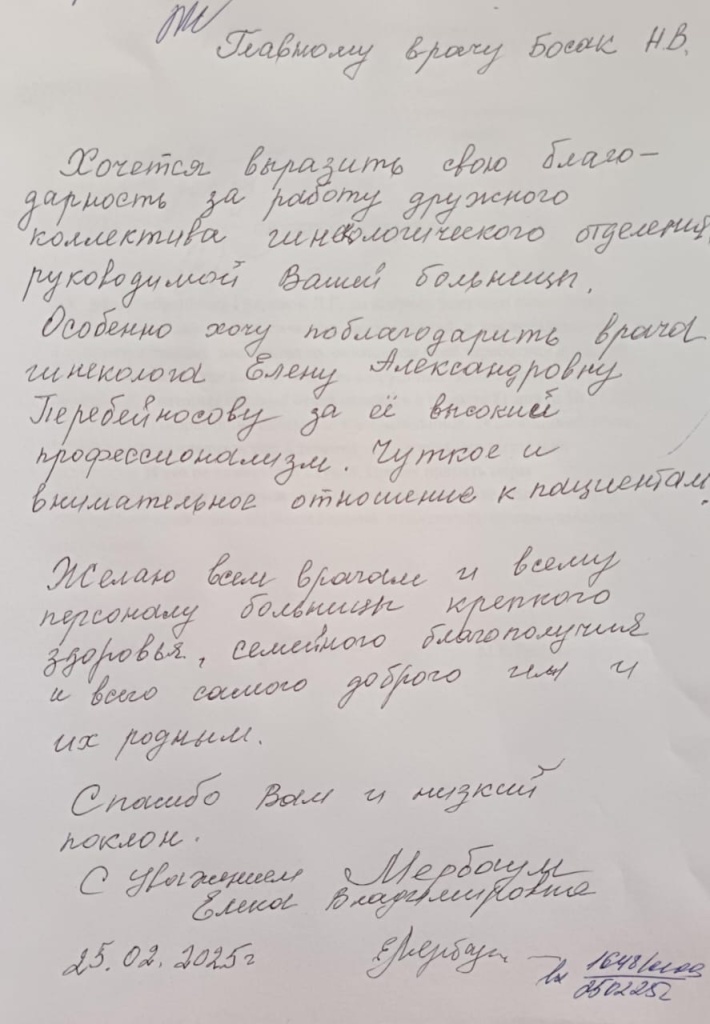 Главному врачу Босак Н.В.
Хочется выразить свою благо-
дарность за работу дружного
коллектива гинекологического отделения
руководимой Вашей больницы.
Особенно хочу поблагодарить врача
гинеколога Елену Александровну
Перебейносову за её высокий
профессионализм. Чуткое и
внимательное отношение к пациентам.
Желаю всем врачам и всему
персоналу больницы крепкого
здоровья, семейного благополучия
и всего самого доброго им и
их родным.
Спасибо Вам и низкий
поклон.
С уважением Мербаум
Елена Владимировна
25.02.2025г
вх
250225г